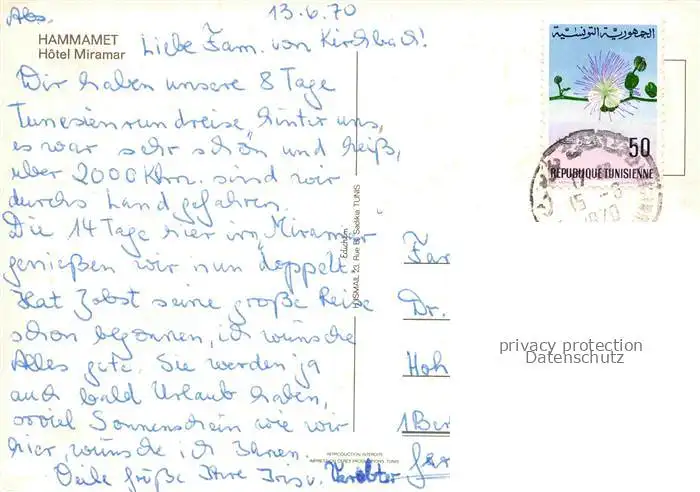 Abs. 13.6.70
HAMMAMET
Hôtel Miramar
Liebe Fam. von Kirchbach!
Wir haben unsere 8 Tage
Tunesienrundreise hinter uns,
es war sehr schön und heiß,
über 2000 Khm. sind wir
durchs Land gefahren.
Die 14 Tage hier im „Miramar"
genießen wir nun doppelt.
Hat Jobst seine große Reise
schon begonnen, ich wünsche
Alles gute. Sie werden ja
auch bald Urlaub haben,
soviel Sonnenschein wie wir
hier, wünsche ich Ihnen.
Viele Grüße Ihre Iris u.
الجمهورية التونسية
50
REPUBLIQUE TUNISIENNE
15 -6
1970
Edichem
HOSMAIL 23, Rue Bl. Sadikia TUNIS
Fam
Dr.
Hoh
1 Ber
REPRODUCTION INTERDITE
IMPRESSION CERES PRODUCTIONS TUNIS
privacy protection
Datenschutz